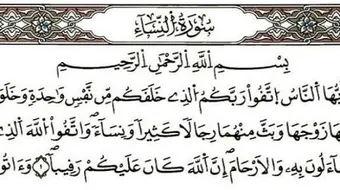 سُورَةُ النِّسَاءِ
بِسْمِ اللَّهِ الرَّحْمَٰنِ الرَّحِيمِ
يُّهَا النَّاسُ اتَّقُواْ رَبَّكُمُ الذِے خَلَقَكُم مِّن نَّفْسٖ وَٰحِدَةٖ وَخَلَقَ
هَا زَوْجَهَا وَبَثَّ مِنْهُمَا رِجَالاٗ كَثِيراٗ وَنِسَآءٗۖ وَاتَّقُواْ اللَّهَ الذِے
سَّآءَلُونَ بِهِۦ وَالَارْحَامَۖ إِنَّ اللَّهَ كَانَ عَلَيْكُمْ رَقِيباٗۖ ١ وَءَاتُوا